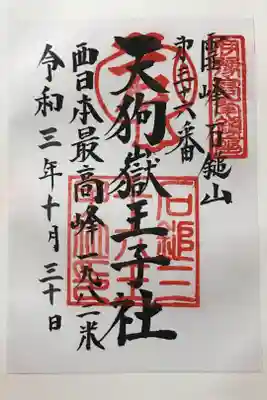 霊峰石鎚山
第三十六番
天狗嶽王子社
西日本最高峰一九八二米
令和三年十月三十日